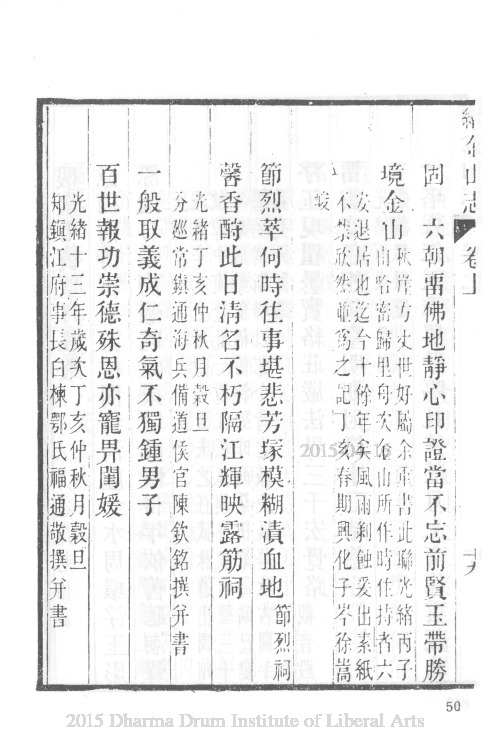 續金山志
卷上
十六
固 六朝畱佛地靜心印證當不忘前賢玉帶勝
境金山秋厓方丈世好屬余重書此聯光緒丙子
由哈密歸里每次金山所作時住持者六
安退居也迄今十餘年矣風雨剝蝕爰出素紙
不禁欣然疏爲之記丁亥春期興化子岑徐嵩
峻
節烈萃何時往事堪悲芳塚模糊漬血地 節烈祠
馨香酹此日淸名不朽隔江輝映露筋祠
光緒丁亥仲秋月穀旦
分廵常鎭通海兵備道侯官陳欽銘撰并書
一般取義成仁奇氣不獨鍾男子
百世報功崇德殊恩亦寵畀閨媛
光緒十三年歲次丁亥仲秋月穀旦
知鎭江府事長白棟鄂氏福通敬撰并書
2015-04-16
50
2015 Dharma Drum Institute of Liberal Arts